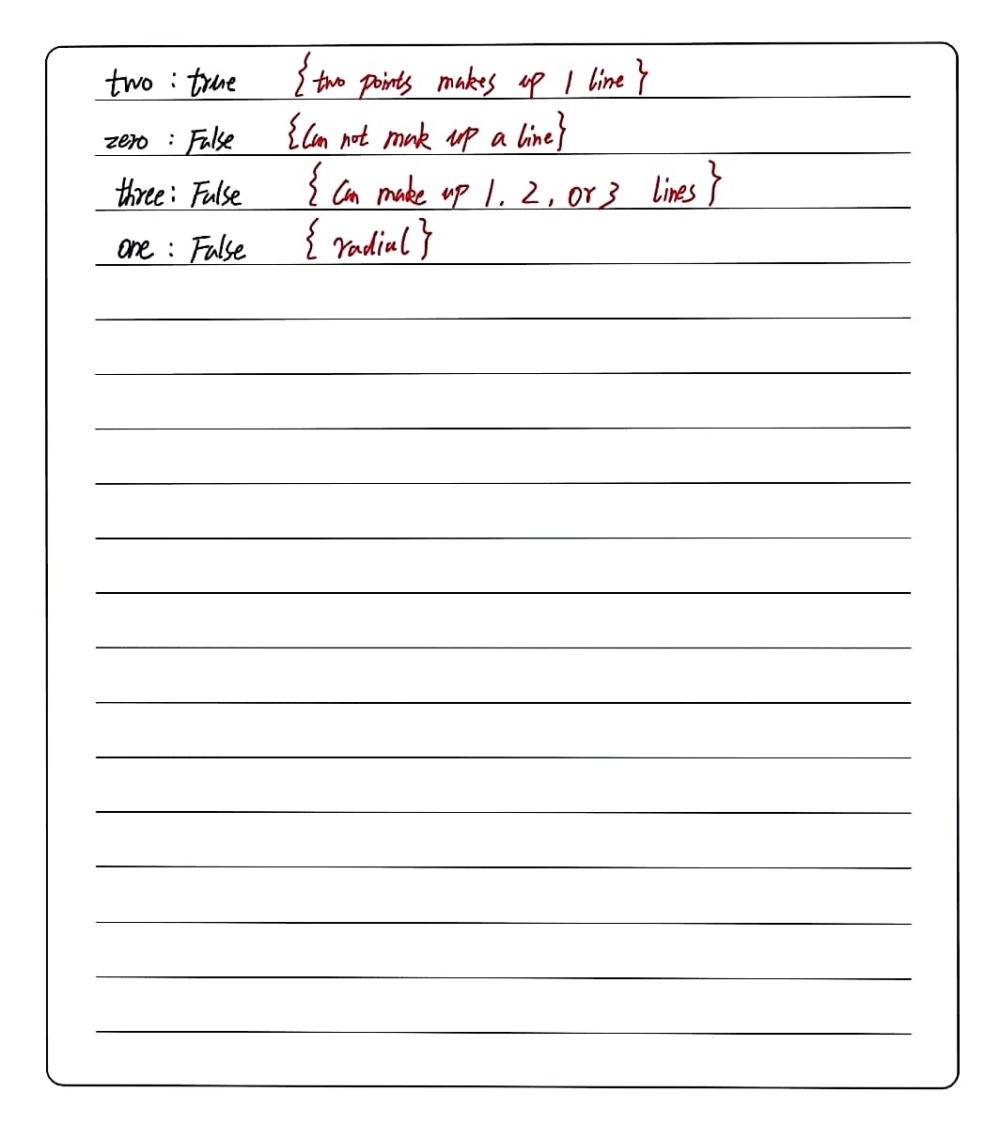 two : true {two points makes up 1 line}
zero : False {Can not mak up a line}
three : False {Can make up 1. 2, or 3 lines}
one : False {radial}